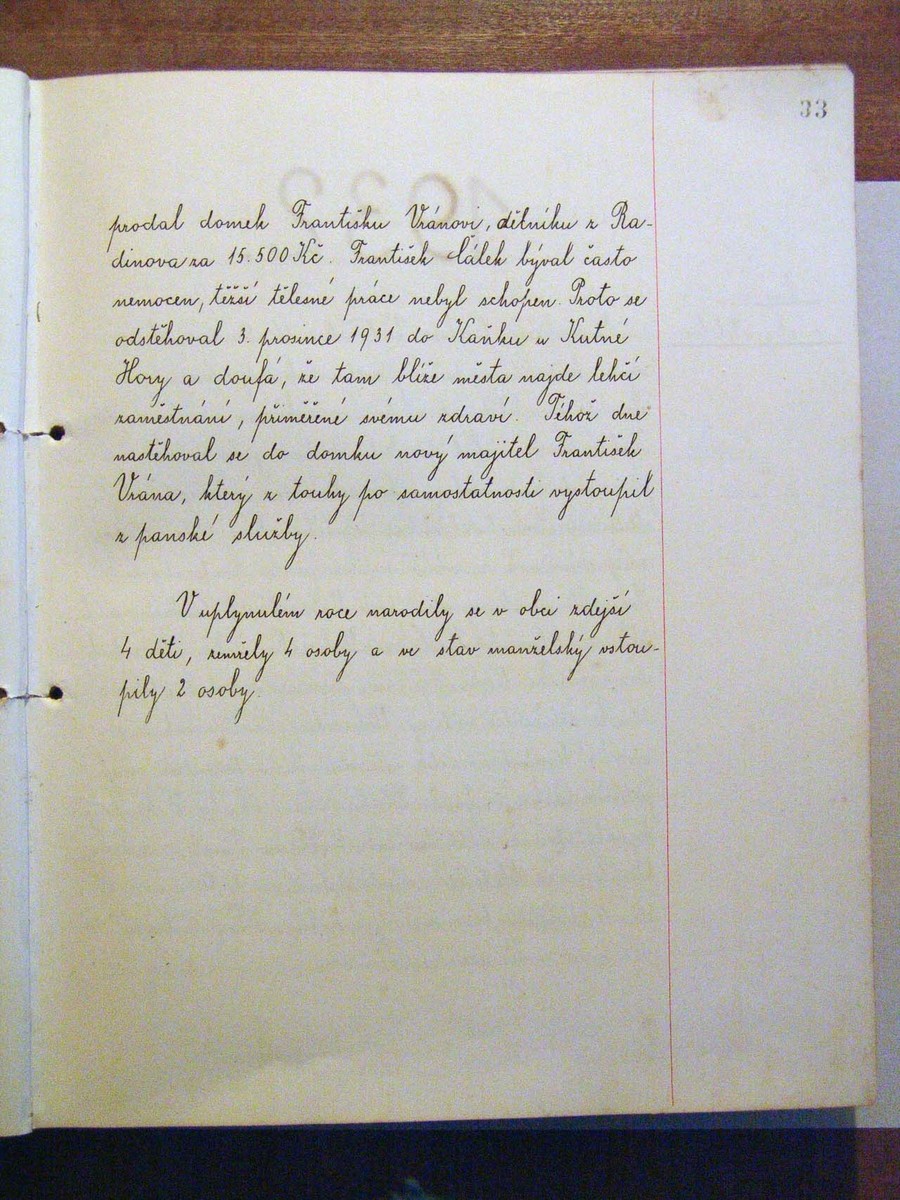 33
prodal domek Františku Vránovi, dělníku z Ra-
dinova za 15.500 Kč. František Čálek býval často
nemocen, těžší tělesné práce nebyl schopen. Proto se
odstěhoval 3. prosince 1931 do Kaňku u Kutné
Hory a doufá, že tam blíže města najde lehčí
zaměstnání, přiměřené svému zdraví. Téhož dne
nastěhoval se do domku nový majitel František
Vrána, který z touhy po samostatnosti vystoupil
z panské služby.
V uplynulém roce narodily se v obci zdejší
4 děti, zemřely 4 osoby a ve stav manželský vstou-
pily 2 osoby.